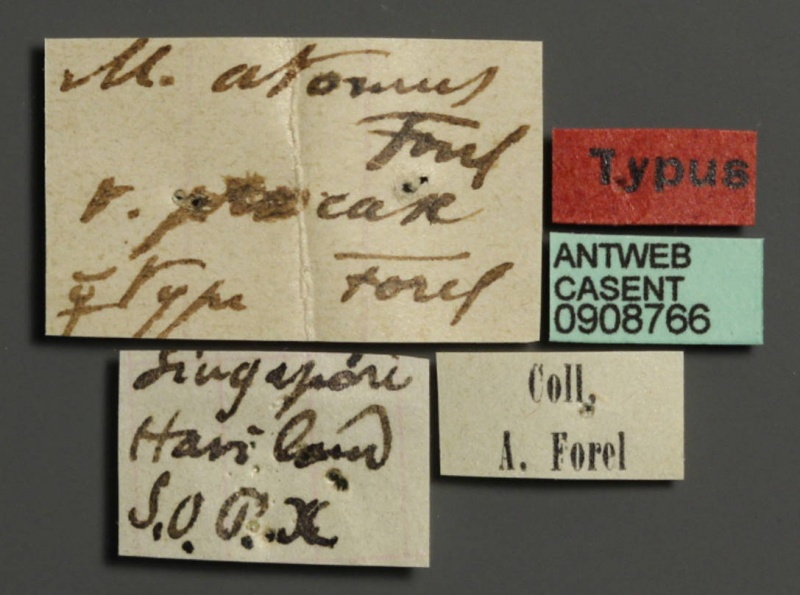 M. atomus
Forel
v. procax
☿ Type Forel
Typus
ANTWEB
CASENT
0908766
Singapore
Haviland
S.O.P. X
Coll.
A. Forel